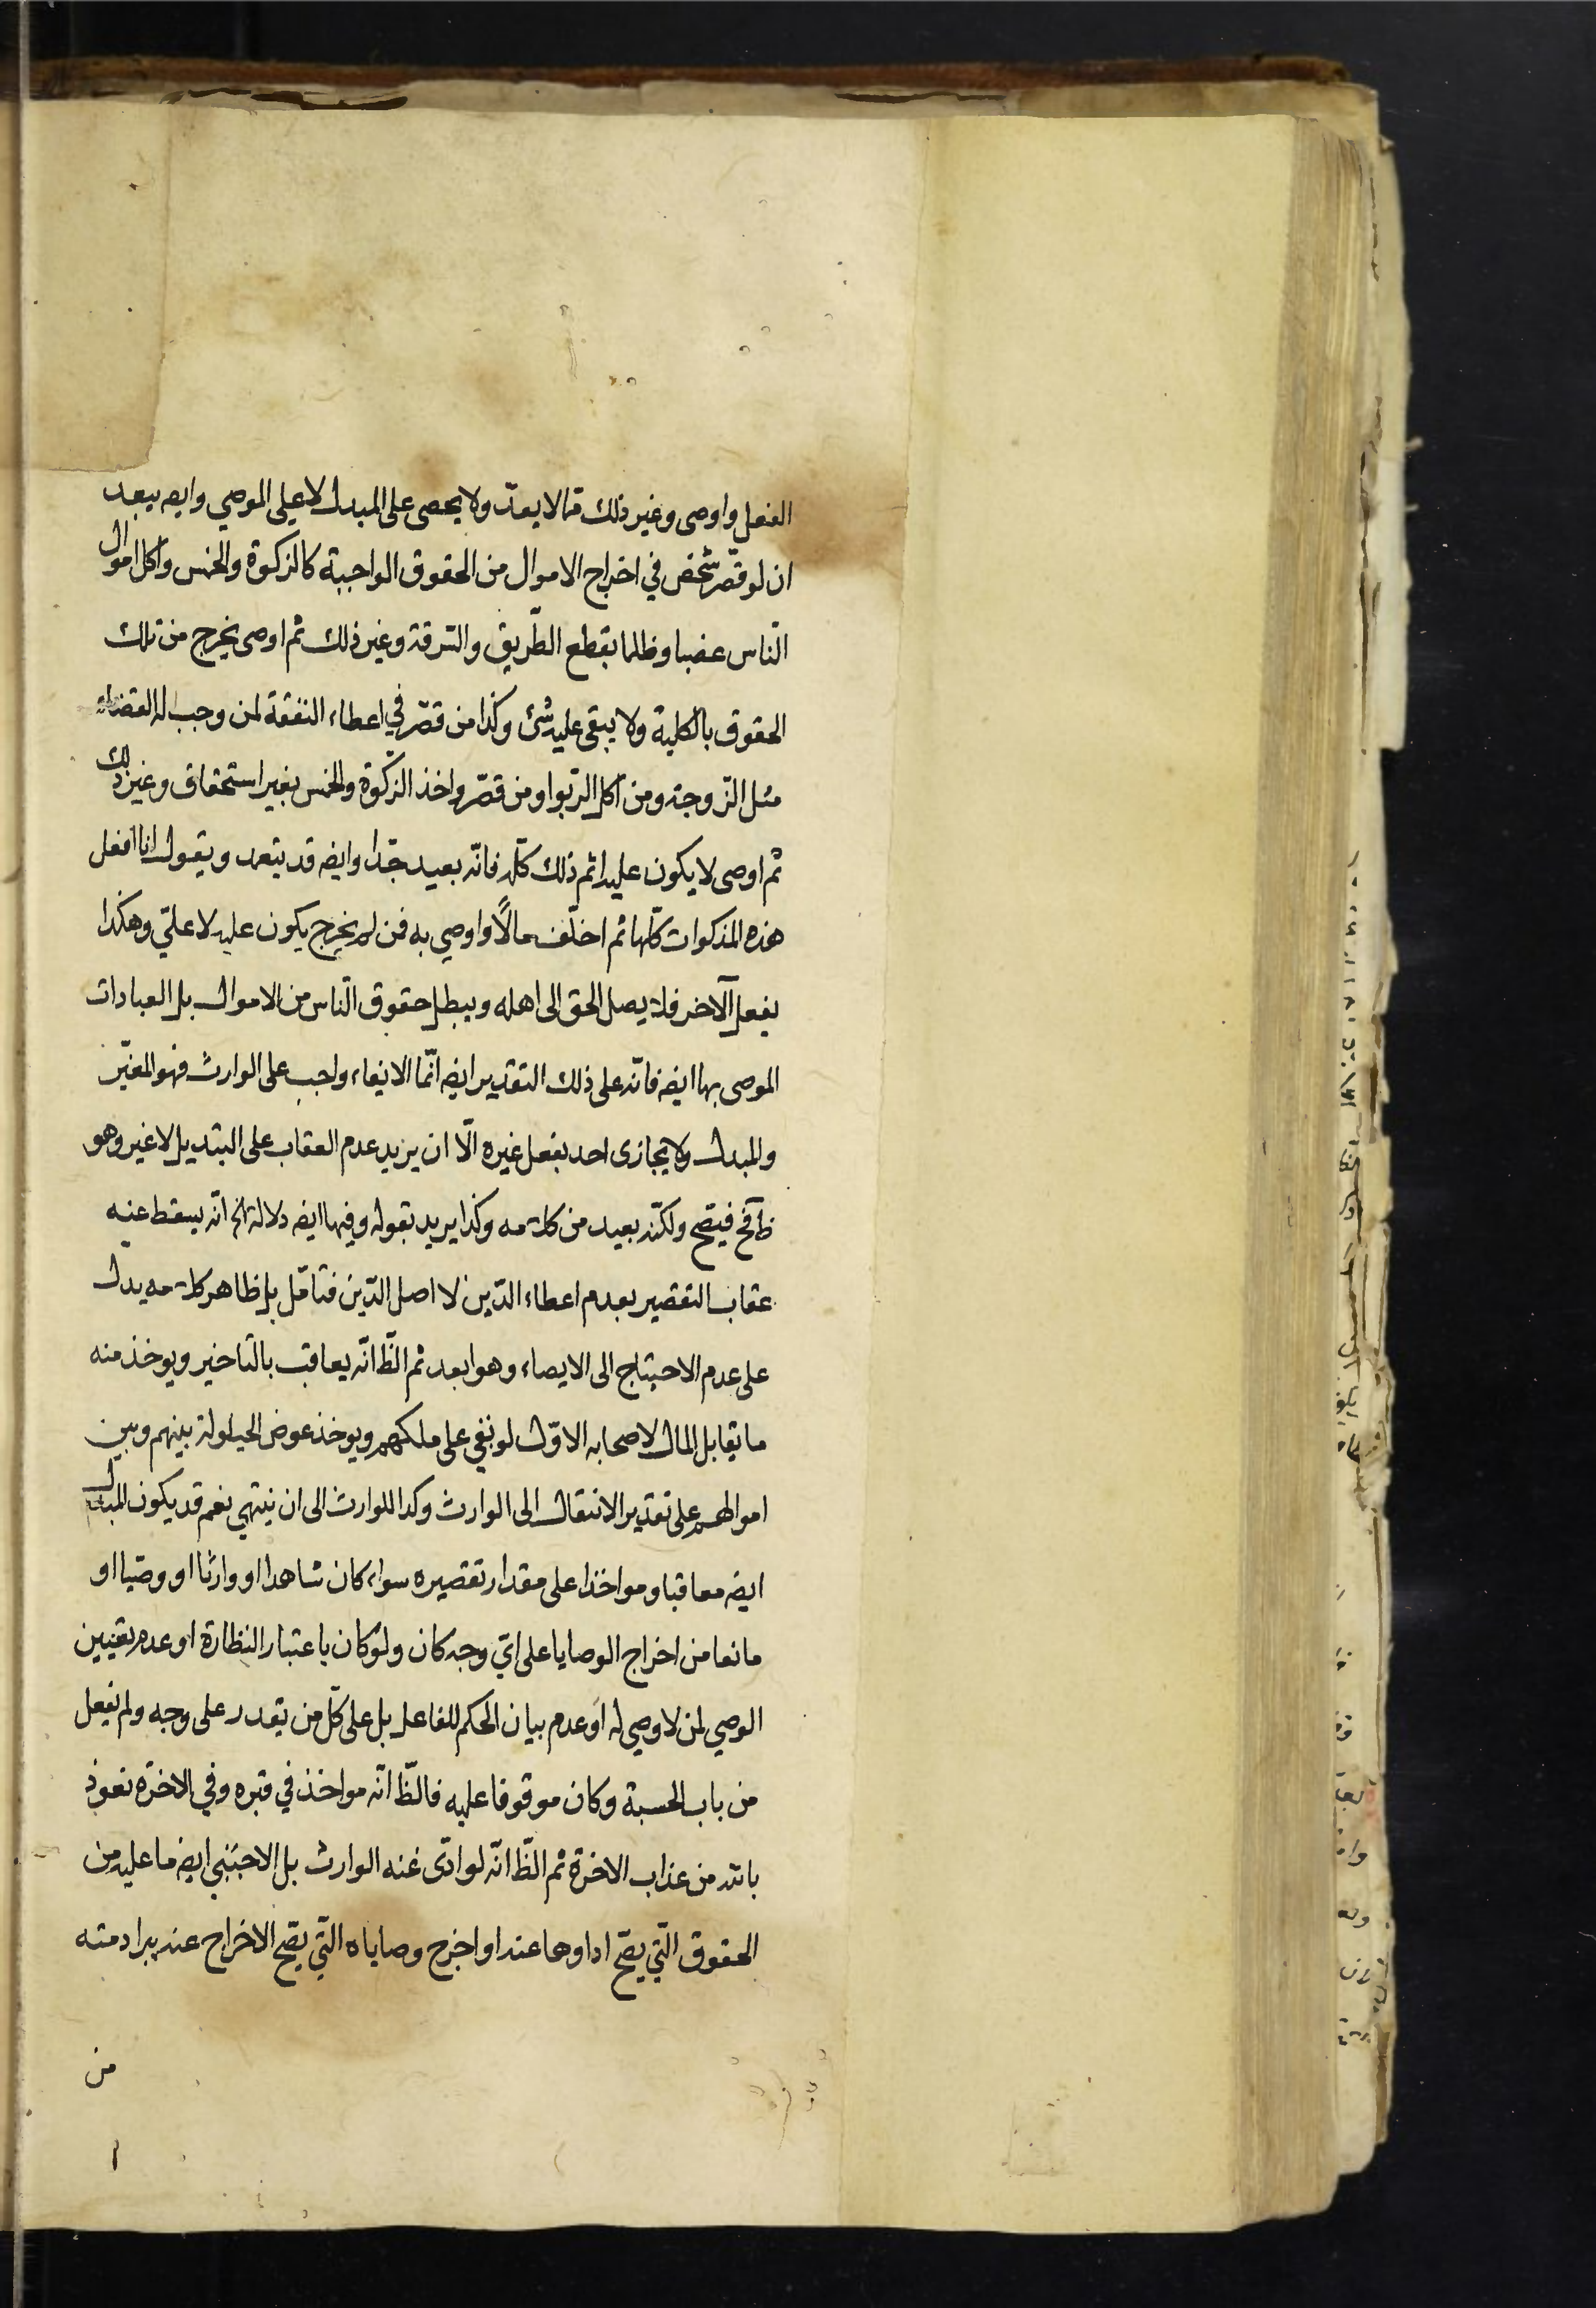 الفعل واوصى وغير ذلك ممّا لا يعدّ ولا يحصى على المبدل لا على الموصي وايضه يبعد
ان لو قصّر شخص في اخراج الاموال من الحقوق الواجبة كالزكوة والخمس واكل اموال
النّاس غصبا وظلما بقطع الطّريق والسّرقة وغير ذلك ثم اوصى يخرج من تلك
الحقوق بالكلية ولا يبقى عليه شئ وكذا من قصّر في اعطاء النفقة لمن وجب له
مثل الزّوجة ومن اكل الرّبوا ومن قصّر واخذ الزكوة والخمس بغير استحقاق وغير ذلك
ثم اوصى لا يكون عليه اثم ذلك كلّه فانّه بعيد جدّا وايضه قد يتعمد ويقول انا افعل
هذه المذكورات كلّها ثم اخلّف مالاً واوصي به فمن لم يخرج يكون عليه لا عليّ وهكذا
يفعل الآخر فلا يصل الحق الى اهله ويبطل حقوق النّاس من الاموال بل العبادات
الموصى بها ايضه فانّه على ذلك التقدير ايضه انّما الايفاء واجب على الوارث فهو المغيّر
والمبدل ولا يجازى احد بفعل غيره الّا ان يريد عدم العقاب على التبديل لا غير وهو
ظ فح فيصّح ولكنّه بعيد من كلامه وكذا يريد بقوله وفيها ايضه دلالة الخ انّه يسقط عنه
عقاب التقصير بعدم اعطاء الدّين لا اصل الدّين فتامّل بل ظاهر كلامه يدل
على عدم الاحتياج الى الايصاء وهو ابعد ثم الظّ انّه يعاقب بالتاخير ويوخذ منه
ما يقابل المال لاصحابه الاوّل لو بقي على ملكهم ويوخذ عوض الحيلولة بينهم وبين
اموالهم على تقدير الانتقال الى الوارث وكذا للوارث الى ان ينتهي نعم قد يكون المبدل
ايضه معاقبا ومواخذا على مقدار تقصيره سواء كان شاهدا او وارثا او وصيّا او
مانعا من اخراج الوصايا على ايّ وجه كان ولو كان باعتبار النظارة او عدم تعيين
الوصي لمن لا وصي له او عدم بيان الحكم للفاعل بل على كلّ من يقدر على وجه ولم يفعل
من باب الحسبة وكان موقوفا عليه فالظّ انّه مواخذ في قبره وفي الاخرة نعوذ
بالله من عذاب الاخرة ثم الظّ انّه لو ادّى عنه الوارث بل الاجنبي ايضه ما عليه من
الحقوق الّتي يصّح اداوها عنه او اخرج وصاياه الّتي يصّح الاخراج عنه يبرا ذمته
من